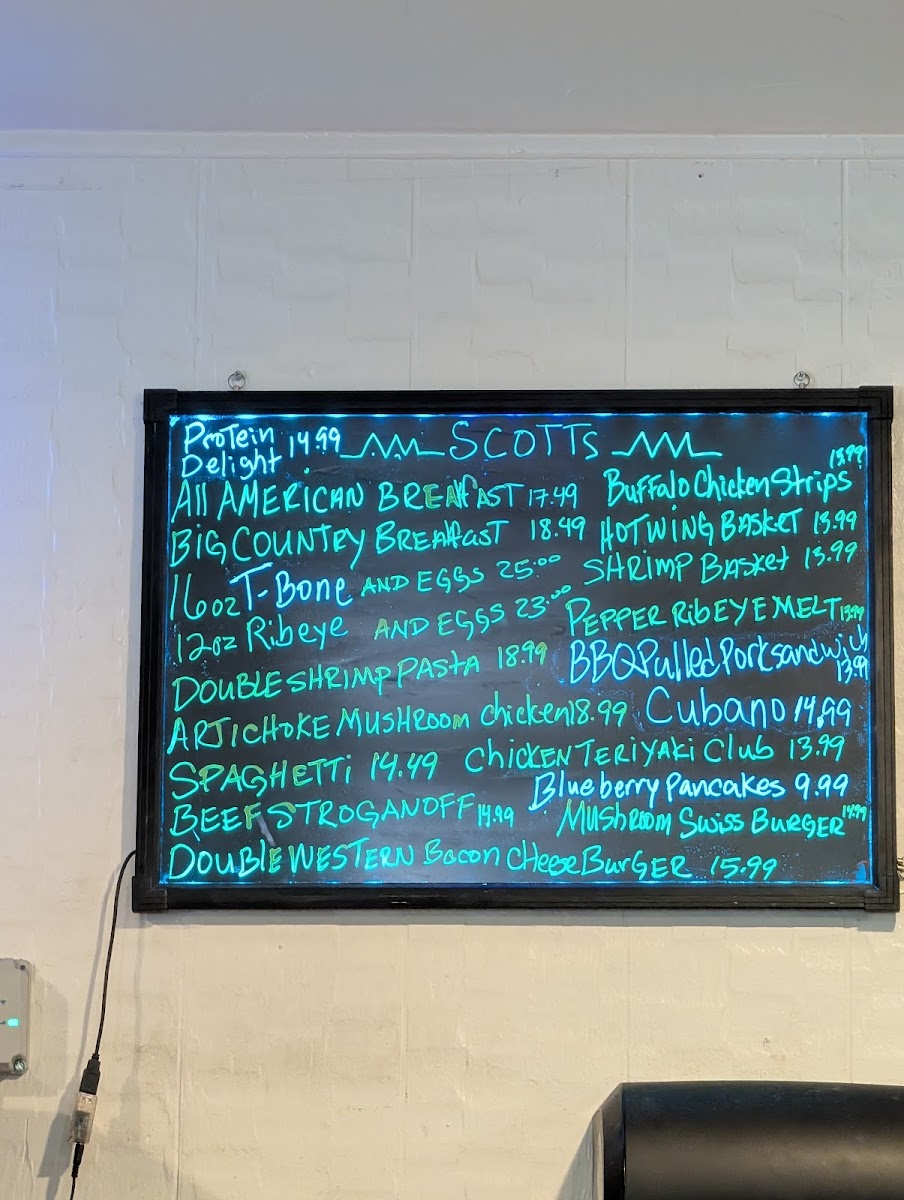 Protein
Delight 14.99
SCOTTs
All AMERICAN BREAKfAST 17.49
BiG COUNTRy BREAKfAST 18.49
16oz T-Bone AND EGGS 25.00
12oz Ribeye AND EGGS 23.00
DOUBLE SHRIMP PASTA 18.99
ARTiCHOKE MUSHROOM chicken 18.99
SPAGHETTi 14.49
BEEF STROGANOFF 14.99
DOUBLE WESTERN Bacon CHeese BurGER 15.99
13.99
Buffalo Chicken Strips
HOT WiNG BASKET 13.99
SHRiMP BASKet 13.99
PEPPER RibEYE MELT 13.99
BBQ Pulled Pork sandwich
13.99
Cubano 14.99
CHiCKEN TERiYAKi Club 13.99
Blueberry Pancakes 9.99
MUSHROOM SWiSS BURGER 14.99